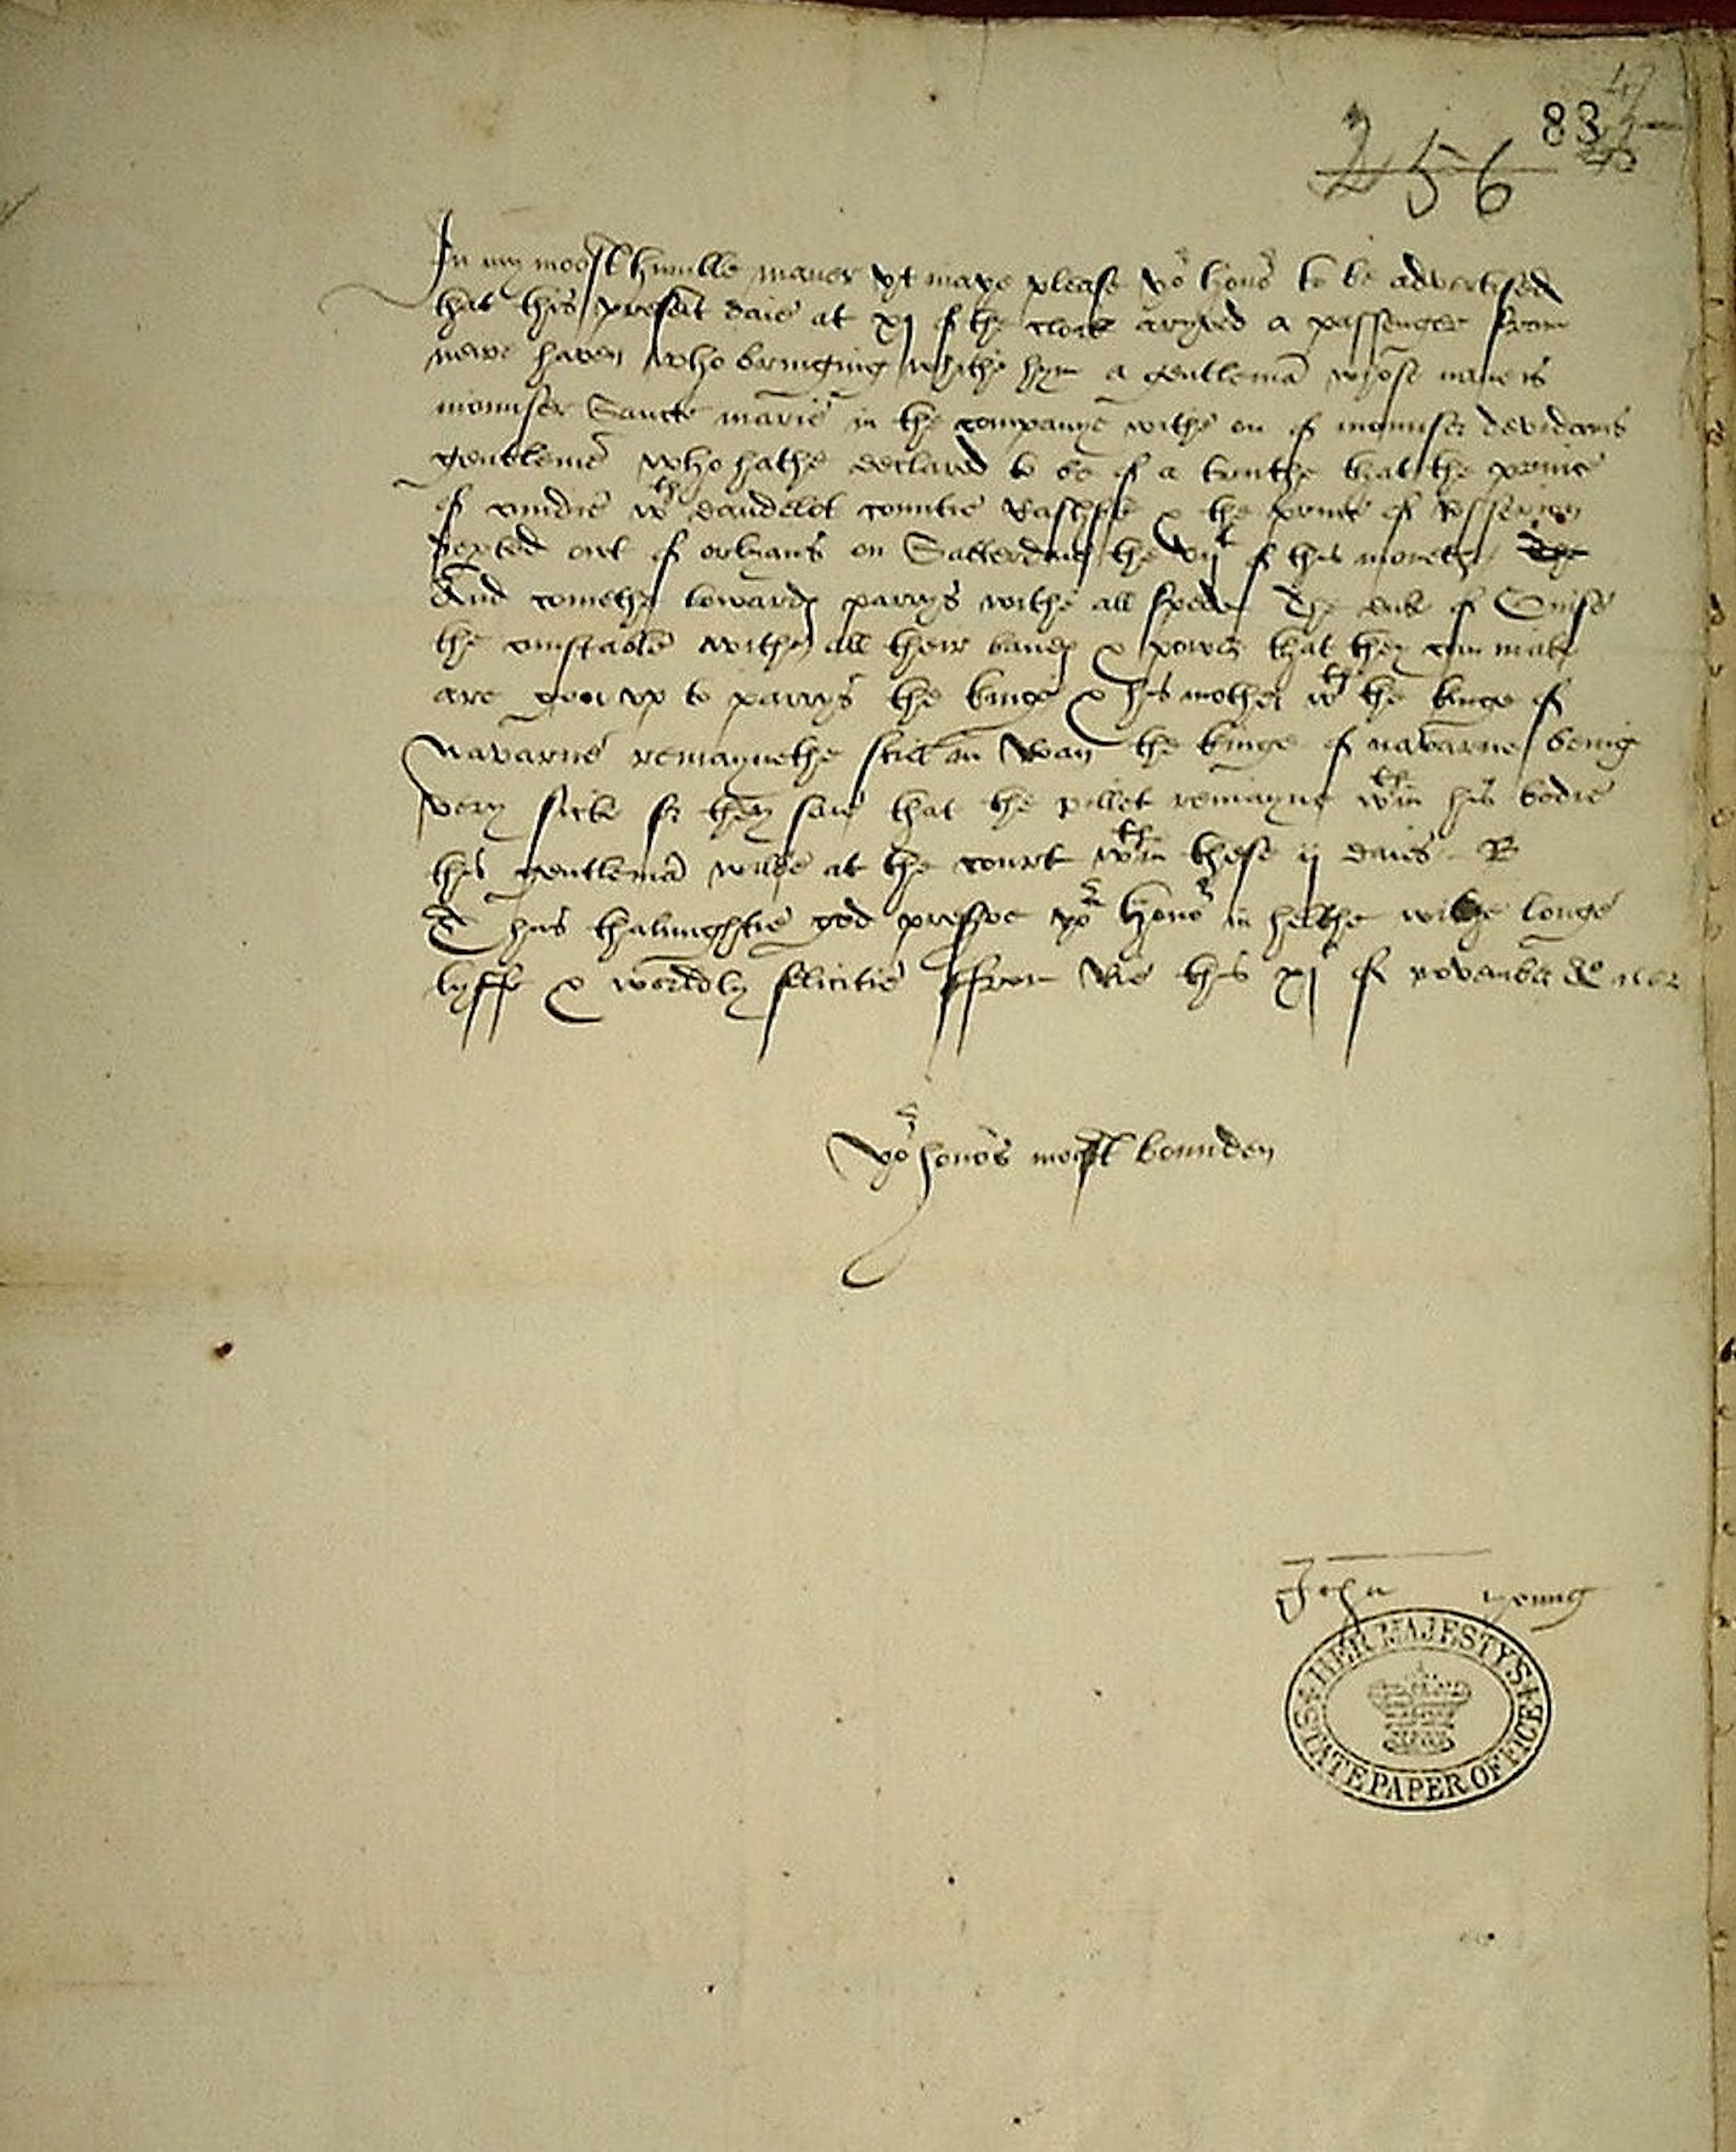 47
83
256
In my moost humble maner yt maye please yor honor to be advertised
that this present daie at xj of the clock aryved a passenger from
newe haven who bringing withe hym a gentlemā whose name is
mounser Sancte marie in the companye withe on of mounser
gentlemē who hathe declared to be of a truthe that the prince
of cundie wth dandelot countie & the prince of
out of orlyans on Satterdaie the vijt of this monethe The
And comethe towardꝭ parrys withe all spede The duke of Guise
the cunstable withe all their bandꝭ & power that they can make
are gon up to parrys the kinge & his mother wth the kinge of
navarne remaynethe still in Roan the kinge of navarne being
very sicke for they saie that the pellet remayne wthin his bodie
this gentlemā wilbe at the court wthin these ij daies
Thus thalmightie god preserve yor honor in helthe withe longe
lyffe & worldly felicitie ffrom Rie this xj of november Ao 1562
Yor honors moost bounden
John Young
HER MAJESTY'S
STATE PAPER OFFICE